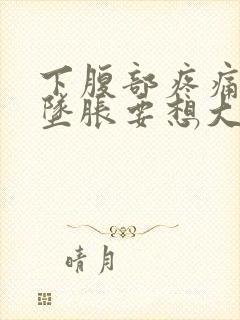 下腹部疼痛
坠胀要想大
晴月